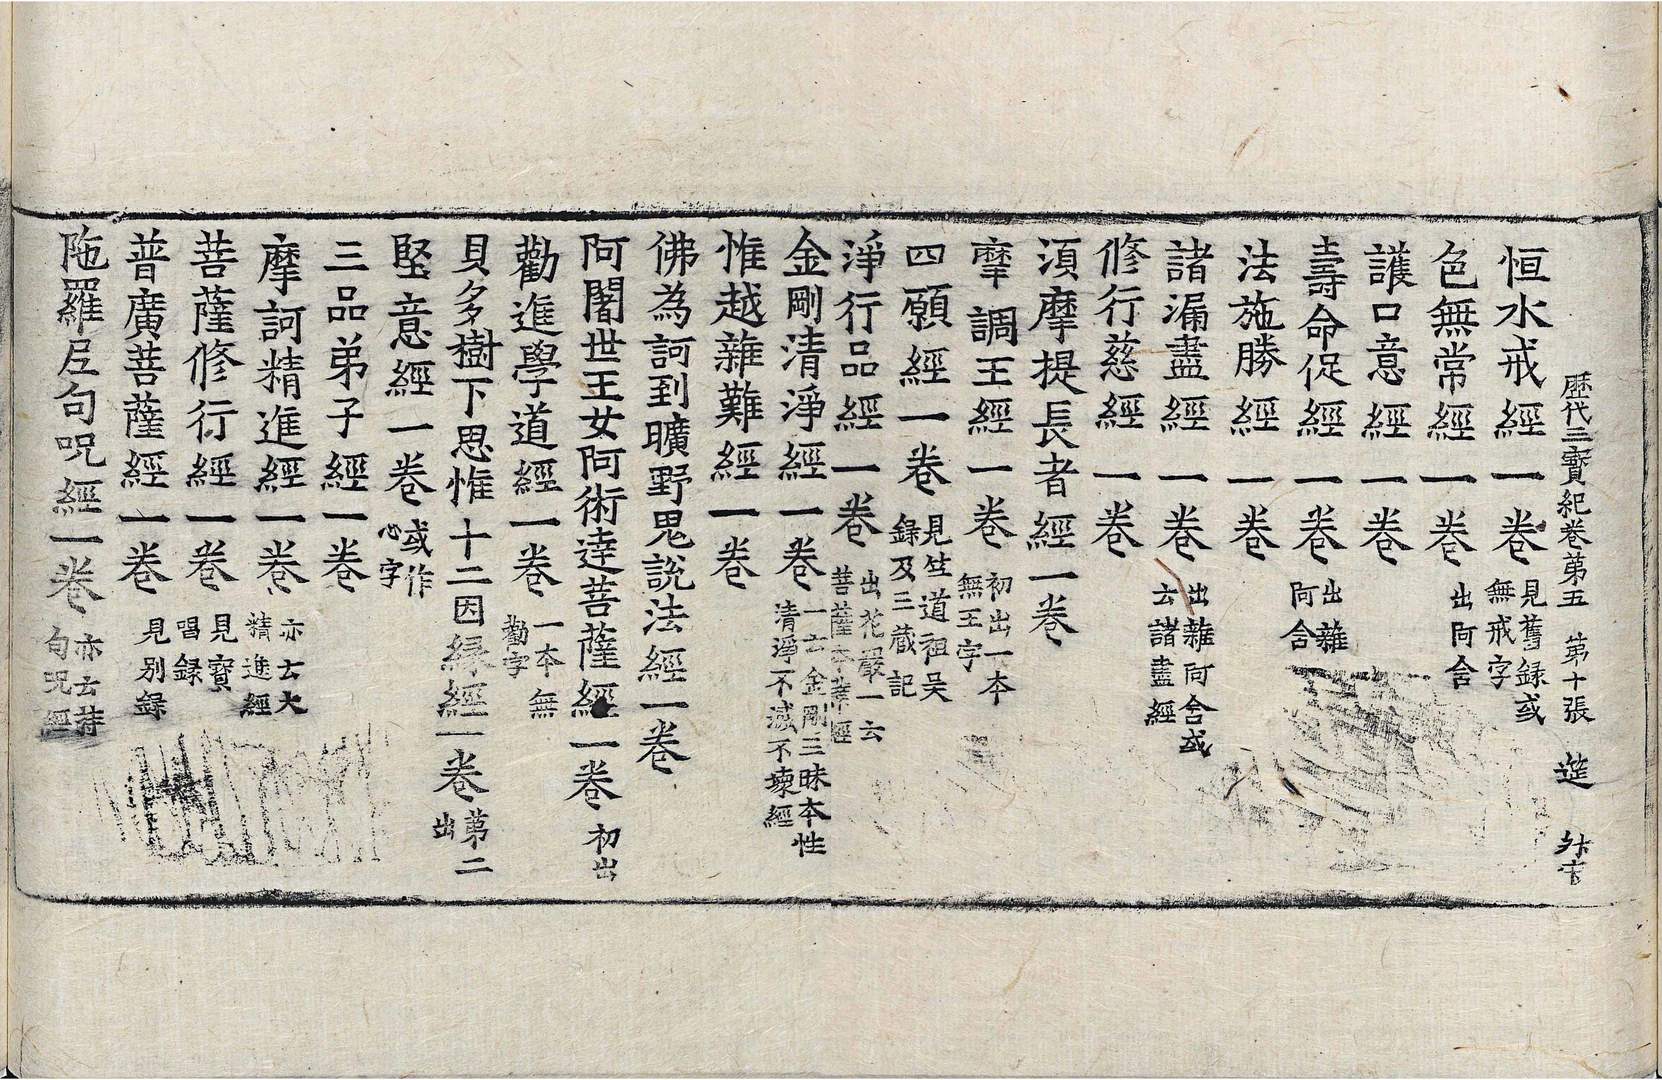 歷代三寶紀卷第五 第十張 筵
恒水戒經一卷 見舊録或無戒字
色無常經一卷 出阿含
護口意經一卷
壽命促經一卷 出雜阿含
法施勝經一卷
諸漏盡經一卷 出雜阿含或云諸盡經
修行慈經一卷
湏摩提長者經一卷
摩調王經一卷 初出一本無王字
四願經一卷 見竺道祖吴録及三藏記
淨行品經一卷 出花嚴一云菩薩本業經
金剛清淨經一卷 一云金剛三昧本性清淨不滅不壞經
惟越雜難經一卷
佛為訶到曠野鬼說法經一卷
阿闍世王女阿術達菩薩經一卷 初出
勸進學道經一卷 一本無勸字
貝多樹下思惟十二因縁經一卷 第二出
堅意經一卷 或作心字
三品弟子經一卷
摩訶精進經一卷 亦云大精進經
菩薩修行經一卷 見寶唱録
普廣菩薩經一卷 見別録
陁羅尼句呪經一卷 亦云持句呪經